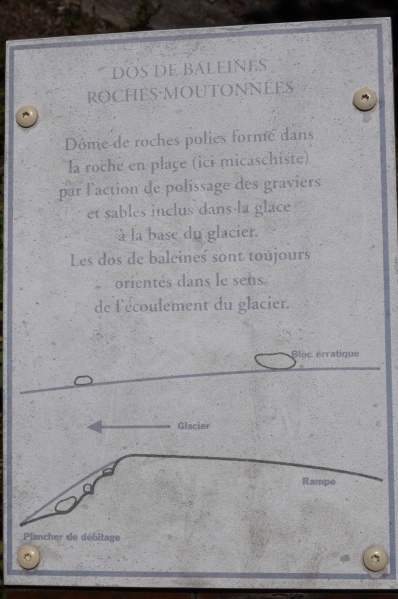 DOS DE BALEINES
ROCHES-MOUTONNÉES
Dôme de roches polies formé dans
la roche en place (ici micaschiste)
par l'action de polissage des graviers
et sables inclus dans la glace
à la base du glacier.
Les dos de baleines sont toujours
orientés dans le sens
de l'écoulement du glacier.
Bloc erratique
Glacier
Rampe
Plancher de débitage